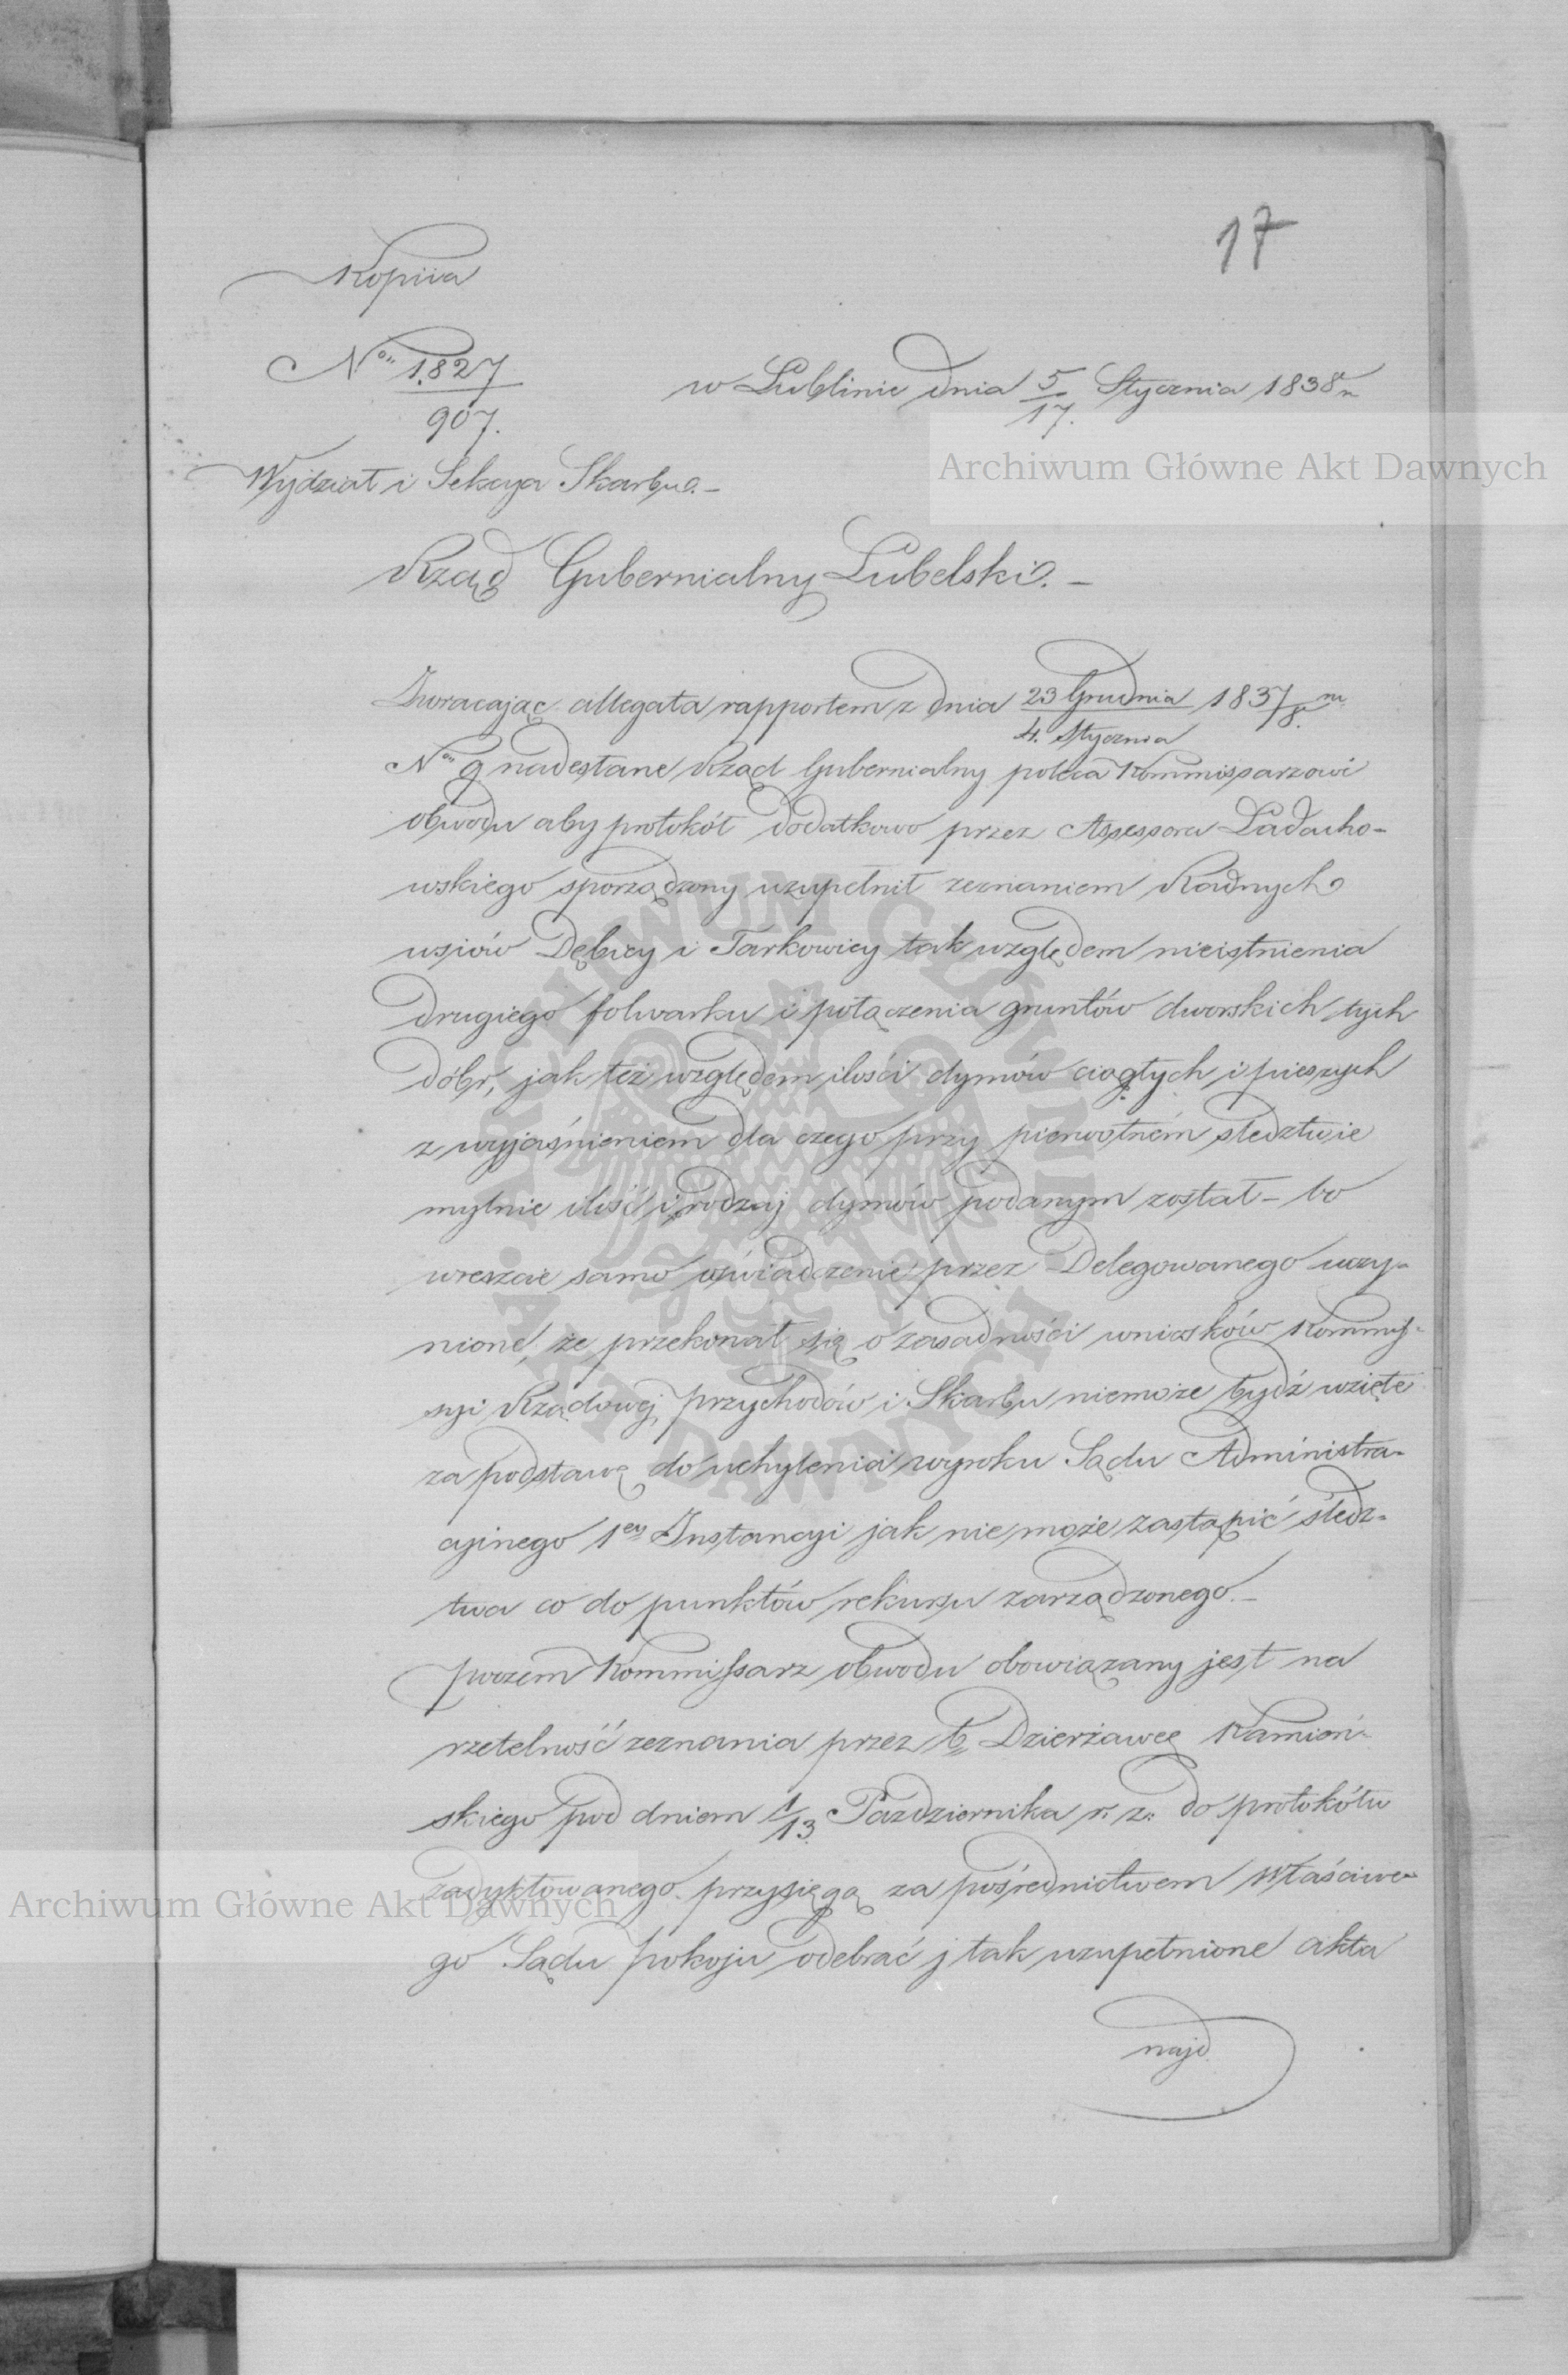 17
Kopiia
Nº 1827
907.
w Lublinie dnia 5/17. Stycznia 1838 r.
Archiwum Główne Akt Dawnych
Wydział i Sekcya Skarbu. –
Rząd Gubernialny Lubelski. –
Zwracając allegata rapportem z dnia 23 Grudnia / 4. Stycznia 1837/8. r.
Nº 9 nadesłane Rząd Gubernialny poleca Kommissarzowi
obwodu aby protokół dodatkowo przez Assessora Ładacho-
wskiego sporządzony uzupełnił zeznaniem Radnych
wsiów Dębicy i Tarkowicy tak względem nieistnienia
drugiego folwarku i połączenia gruntów dworskich tych
dóbr, jak też względem ilości dymów ciągłych i pieszych
z wyjaśnieniem dla czego przy pierwotném śledztwie
mylnie ilość i rodzaj dymów podanym został – bo
wreszcie samo oświadczenie przez Delegowanego uczy-
nione, że przekonał się o zasadności wniosków Kommis-
syi Rządowej Przychodów i Skarbu niemoże bydź wzięte
za podstawę do uchylenia wyroku Sądu Administra-
cyinego 1ey Instancyi jak nie może zastąpić śledz-
twa co do punktów rekursu zarządzonego. –
Poczem Kommissarz obwodu obowiązany jest na
rzetelność zeznania przez b. Dzierżawcę Kamień-
skiego pod dniem 1/13 Pazdziernika r. z. do protokółu
zadyktowanego przysięgą za pośrednictwem właściwe-
go Sądu Pokoju odebrać j tak uzupełnione akta
najd
Archiwum Główne Akt Dawnych
ARCHIWUM GŁÓWNE AKT DAWNYCH